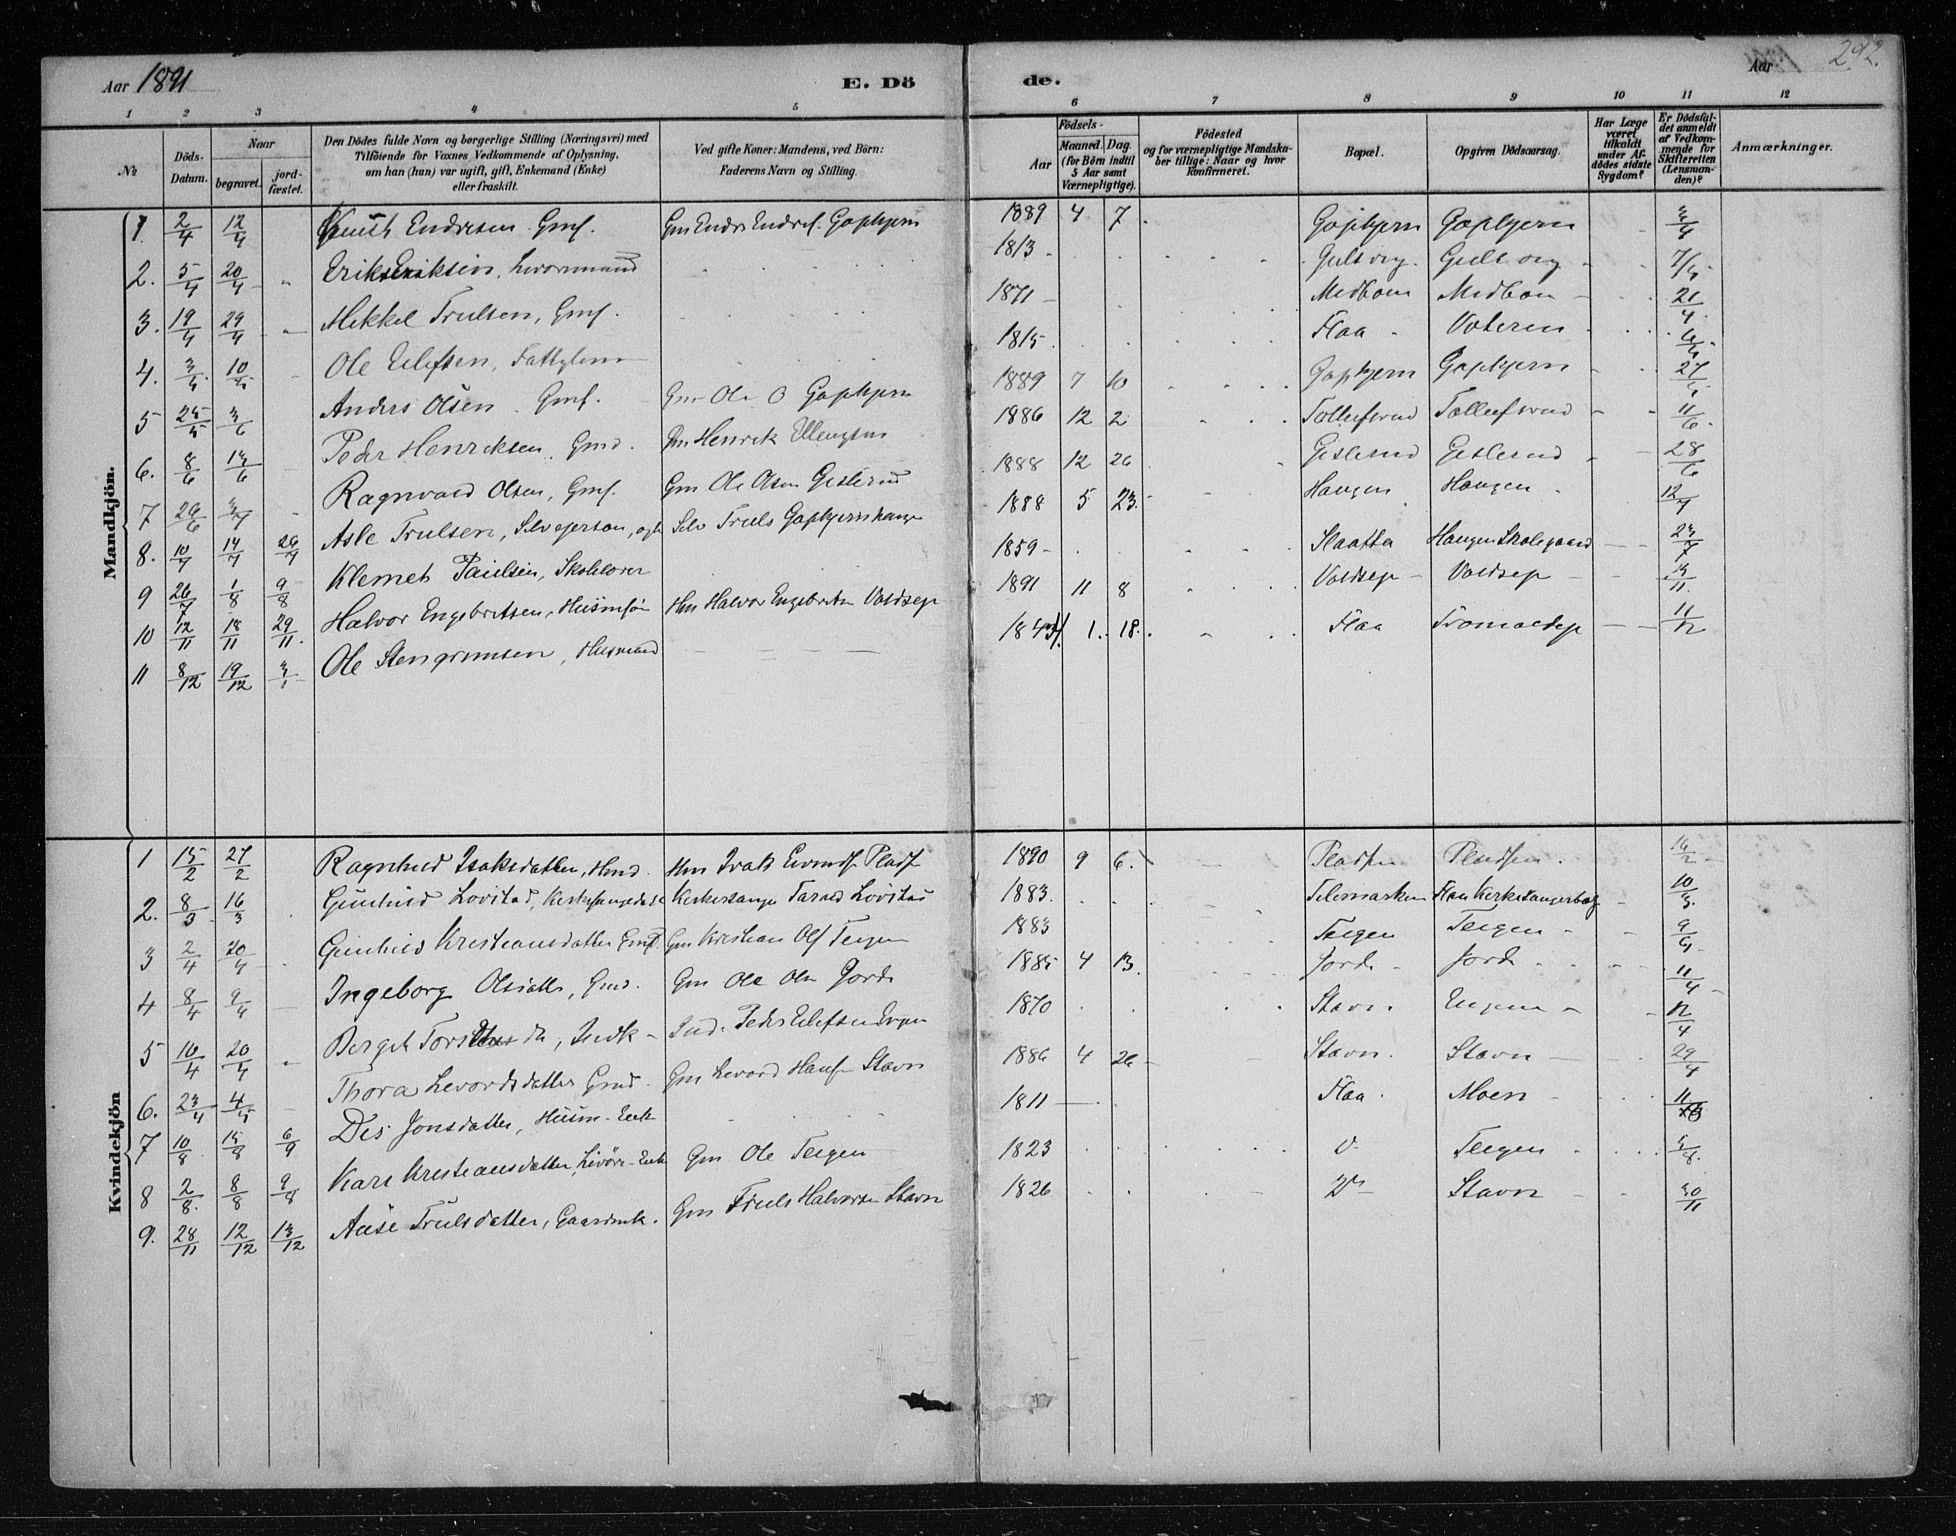 Aar 1891
E. Döde.
Aar
292.
1 2 3 4 5 6 7 8 9 10 11 12
№
Döds-Datum.
Naar
begravet.
jord-fæstet.
Den Dödes fulde Navn og borgerlige Stilling (Næringsvei) med
Tilföiende for Voxnes Vedkommende af Oplysning,
om han (hun) var ugift, gift, Enkemand (Enke)
eller fraskilt.
Ved gifte Koner: Mandens, ved Börn:
Faderens Navn og Stilling.
Födsels-
Aar
Maaned. Dag.
(for Börn indtil
5 Aar samt
Værnepligtige).
Födested
og for værnepligtige Mandska-
ber tillige: Naar og hvor
konfirmeret.
Bopæl.
Opgiven Dödsaarsag.
Har Læge
været
tilkaldt
under Af-
dödes sidste
Sygdom?
Er Dödsfal-
det anmeldt
af Vedkom-
mende for
Skifteretten
(Lensman-
den)?
Anmærkninger.
Mandkjön.
1. 2/4 12/4 Knut Endresen Gmf. Gm Endre Endres. Gapkjern 1889 4 7 Gapkjern Gapkjern
2. 5/4 20/4 Erik Eriksen 1813 Gulsvig Gulsvig 7/4
3. 19/4 29/4 Mikkel Trulsen, Gmf. 1871 Medboen Medboen 21/4
4. Ole Eilefsen, 1815 Flaa
5 Anders Olsen Gmf. Gm Ole O Gapkjern 1889 7 10 Gapkjern Gapkjern
6. 8/6 13/6 Peder Henriksen, Gmd. Gm Henrik 1886 12 2 Tollefsrud Tollefsrud 11/6
7 26/6 3/7 Ragnvald Olsen, Gmf. Gm Ole Olsen Gislerud 1888 12 26 Gislerud Gislerud 28/6
8. 10/7 14/7 26/7 Asle Trulsen, Selv Truls Gapkjernshaugen 1888 5 23 Haugen Haugen 12/7
9 26/7 1/8 9/8 Klemet Paulsen, Skolelærer 1859 Slaatta Haugen Skolegaard
10 12/11 18/11 29/11 Halvor Engebretsen, Husmsøn Hm Halvor Engebretsen Voldsep 1891 11 8 Voldsep Voldsep
11 8/12 19/12 3/1 Ole Stengrimsen, Husmand 1. 18. Flaa 11/12
Kvindekjön
1 15/2 27/2 Ragnhild Isaksdatter, Hmd. Hm Isak Pladsen 1890 9 6. Pladsen Pladsen
2. 8/3 16/3 Gunhild Lovstad, Kirkesangerdatt Kirkesanger Tarald Lovstad 1883 Telemarken Flaa Kirkesangerbolig 10/3
3 2/4 20/4 Gunhild Kristiansdatter Gmd. Gm Kristian Ols Teigen 1883 Teigen Teigen 9/4
4 8/4 9/4 Ingeborg Olsdatter, Gmd. Gm Ole Olsen Jorde 1885 4 13 Jorde Jorde 11/4
5 10/4 20/4 Berget Ind. Peder Eilefsen 1870 Stavn 12/4
6. 23/4 4/5 Thora Levordsdatter Gmd. Gm Levord Hansen Stavn 1886 4 26 Stavn. Stavn 29/4
7 10/8 15/8 6/9 Des Jonsdatter, Husm-Enk 1811 Flaa Moen
8 2/8 8/8 9/8 Kari Kristiansdatter, Gm Ole Teigen 1823 Teigen 5/8
9. 28/11 12/12 13/12 Aase Trulsdatter, Gaardmk. Gm Truls Halvorsen Stavn 1826 Stavn 30/11